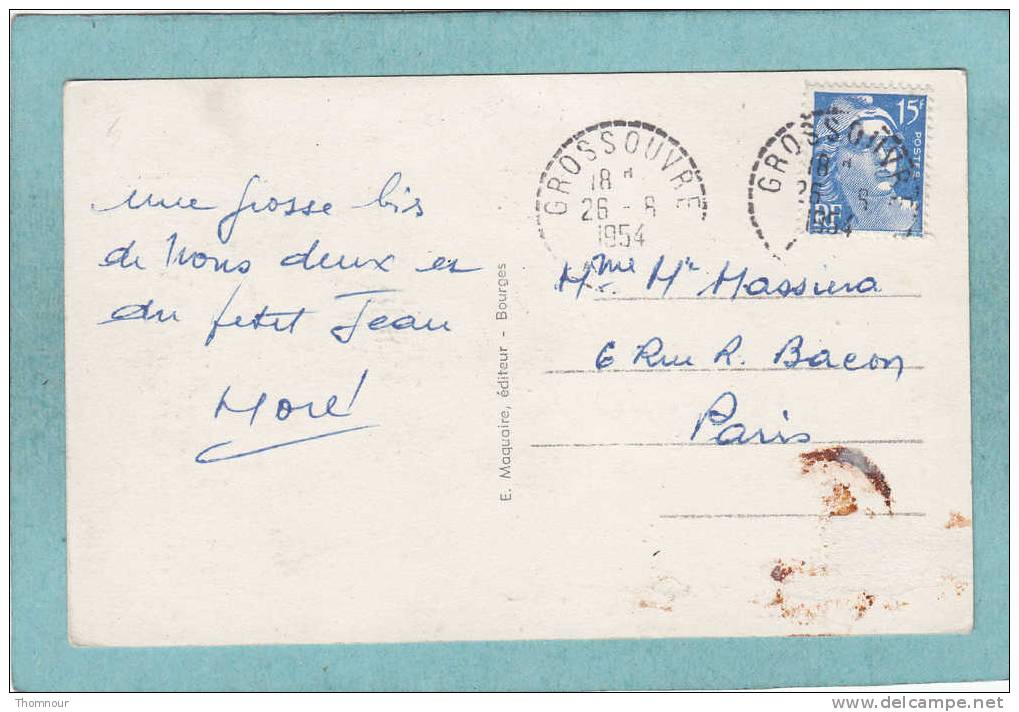 une grosse bis
de nous deux et
du petit Jean
Moré
E. Maquaire, éditeur - Bourges
GROSSOUVRE
18 H
26 - 8
1954
GROSSOUVRE
18 H
26 - 8
1954
15F
POSTES
RF
Mme Mr Massiera
6 Rue R. Bacon
Paris
Thomnour
www.delcampe.net